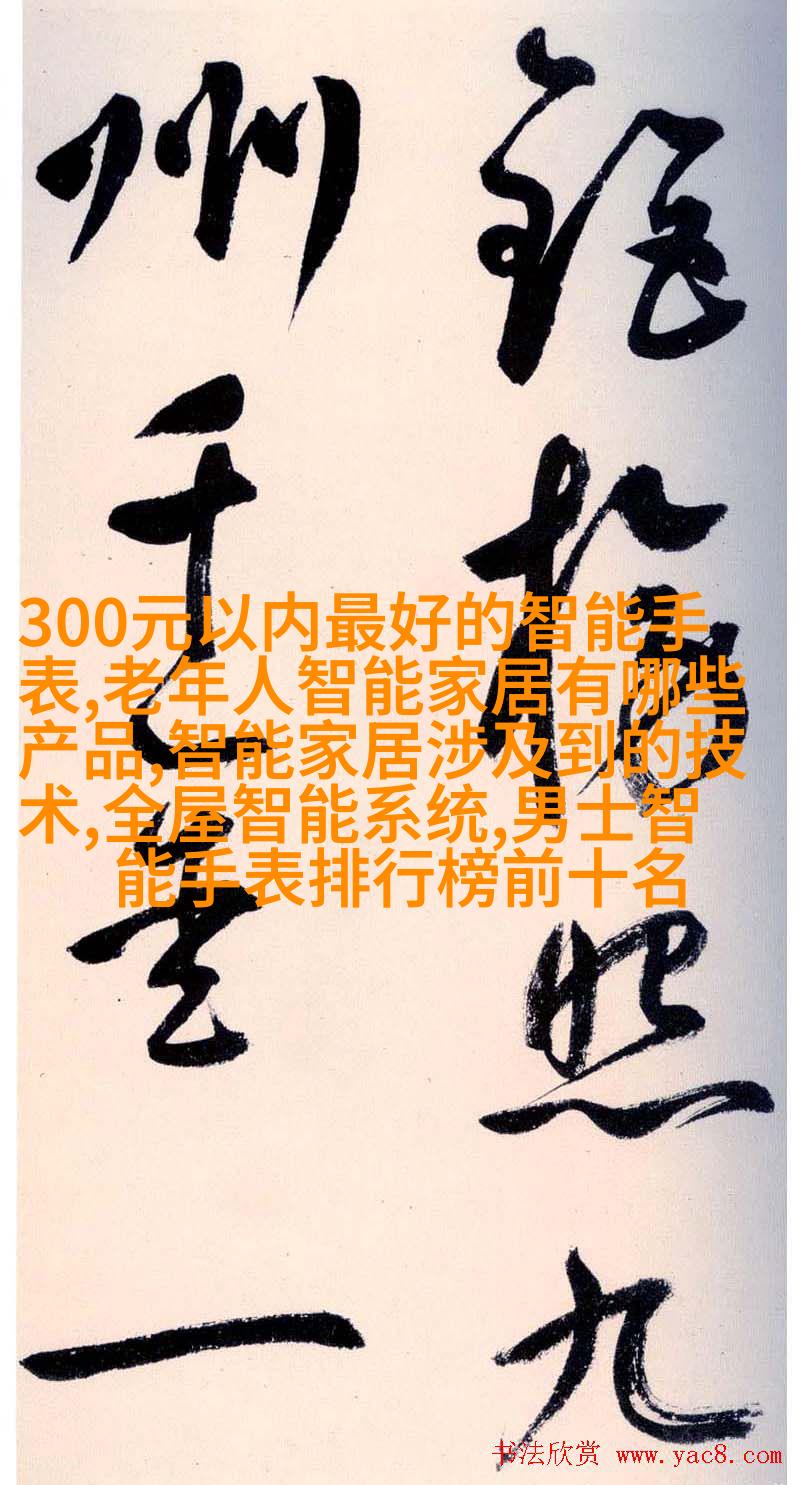 照九
州一
300元以内最好的智能手
表,老年人智能家居有哪些
产品,智能家居涉及到的技
术,全屋智能系统,男士智
能手表排行榜前十名
书法欣赏 www.yac8.com